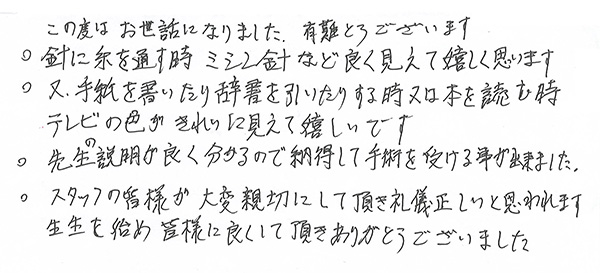 この度は お世話になりました. 有難とうございます
○ 針に糸を通す時 ミシン針など良く見えて嬉しく思います
○ 又、手紙を書いたり辞書を引いたりする時又は本を読む時
テレビの色がきれいに見えて嬉しいです
○ 先生の説明が良く分かるので納得して手術を受ける事が出来ました.
○ スタッフの皆様が 大変親切にして頂き礼儀正しいと思われます
生生を始め 皆様に良くして頂きありがとうございました